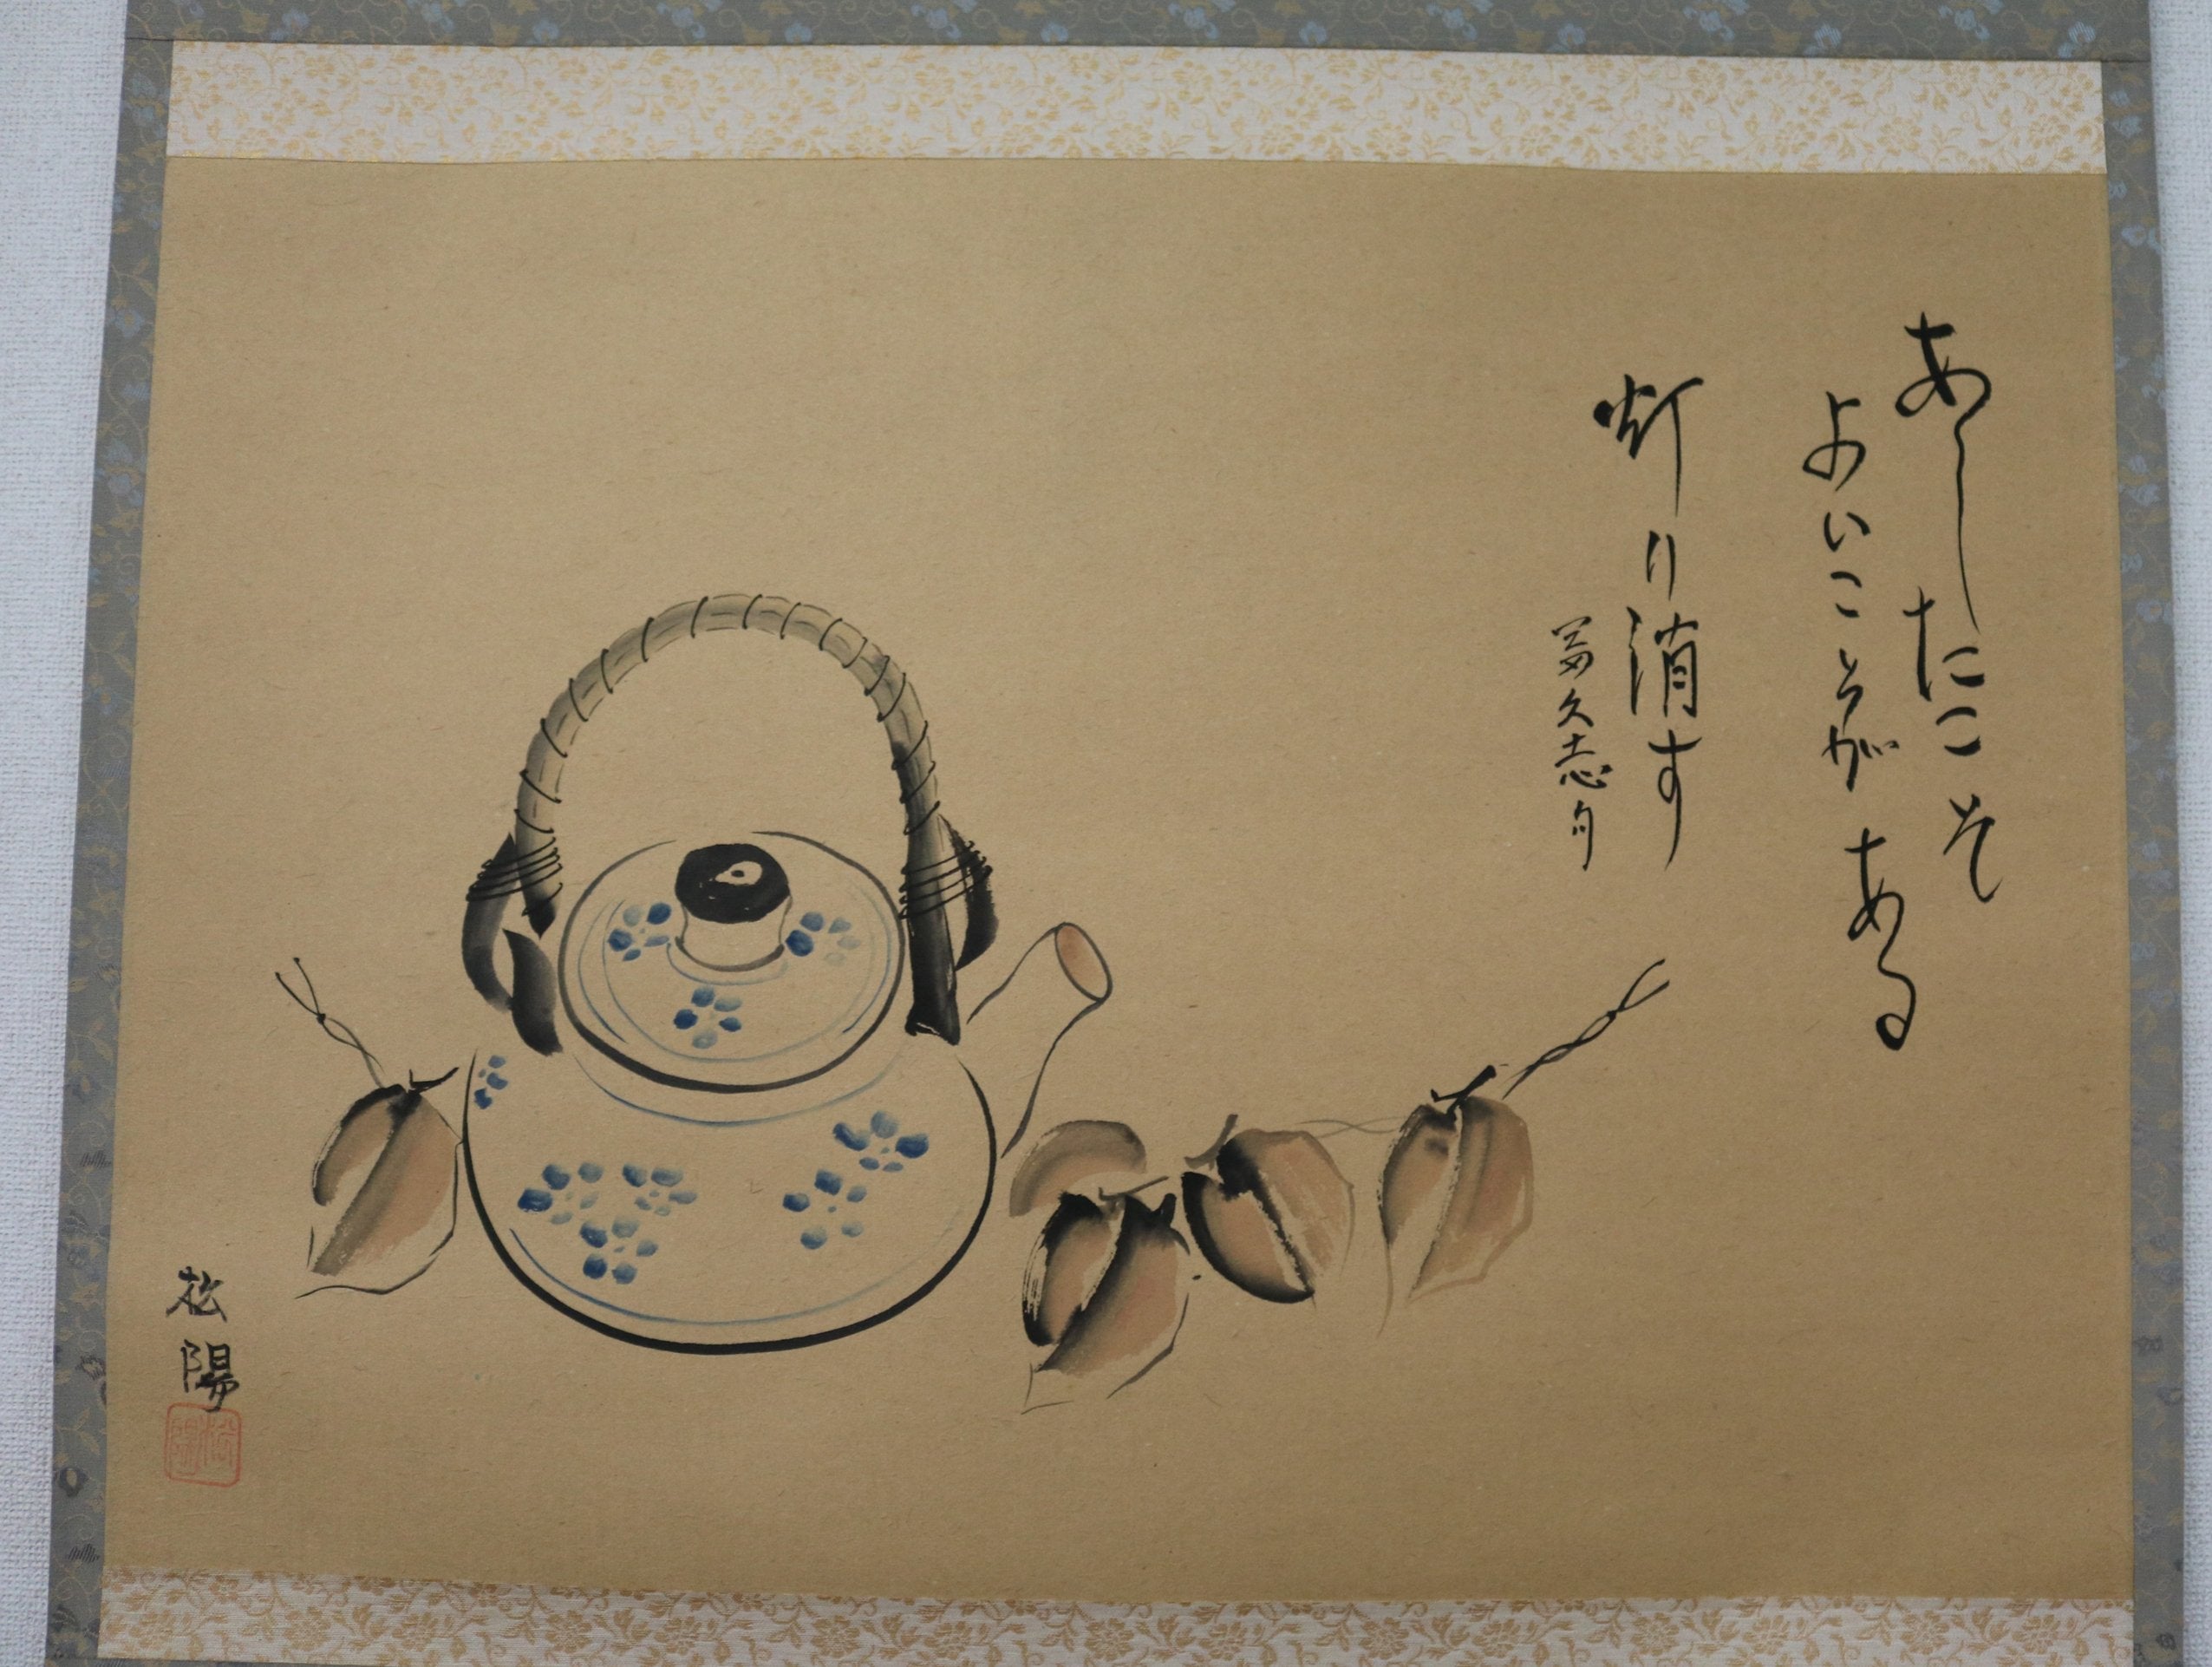 あしたこそ
よいことが ある
灯り消す
富久志句
松陽